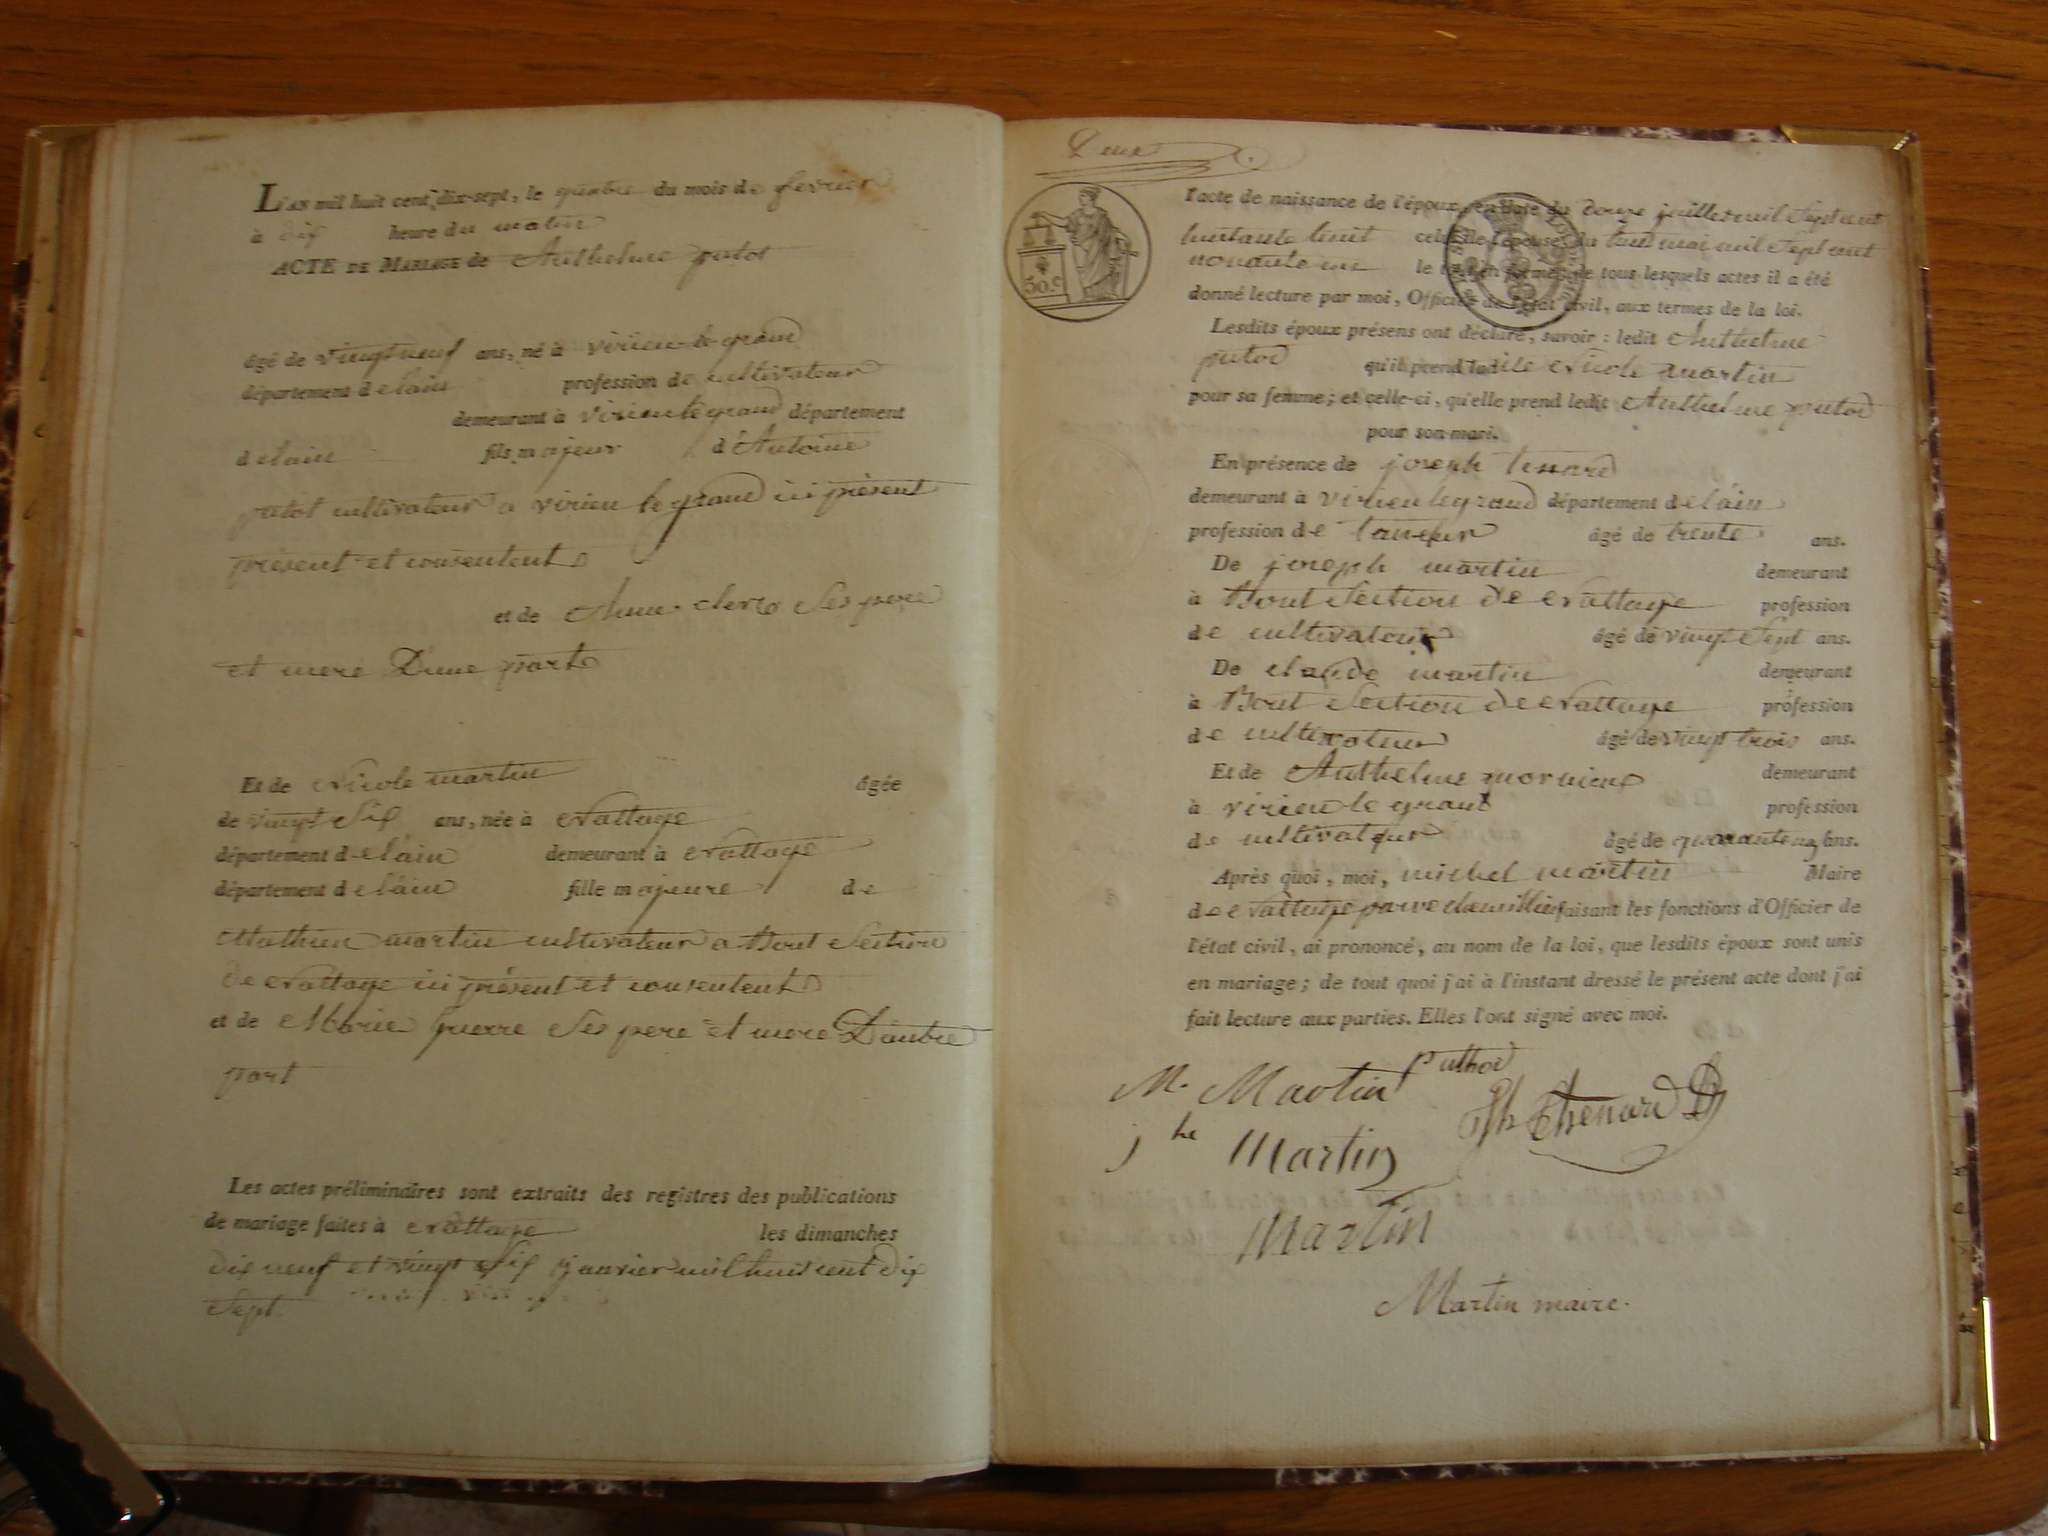 L'AN mil huit cent dix-sept, le quatre du mois de fevrier
à dix heure du matin
ACTE DE MARIAGE de Anthelme putot
âgé de vingt neuf ans, né à virieu le grand
département de lain profession de cultivateur
demeurant à virieu le grand département
de lain fils majeur d'Antoine
putot cultivateur a virieu le grand ici présent
présent et consentent
et de Anne clerc Ses pere
et mere D'une part
Et de Nicole martin âgée
de vingt Six ans, née à Nattage
département de lain demeurant à Nattage
département de lain fille majeure de
Mathieu martin cultivateur a Bout Section
de Nattage ici présent et consentent
et de Marie guerre Ses pere et mere D'autre
part
Les actes préliminaires sont extraits des registres des publications
de mariage faites à Nattage les dimanches
dix neuf et vingt Six janvier mil huit cent dix
Sept.
Deux
30.c
l'acte de naissance de l'époux, en date du douze juillet mil Sept cent
huitante huit celui de l'épouse, du huit mai mil Sept cent
novante un le tout en forme; de tous lesquels actes il a été
donné lecture par moi, Officier de l'état civil, aux termes de la loi.
Lesdits époux présens ont déclaré, savoir: ledit Anthelme
putod qu'il prend ladite Nicole martin
pour sa femme; et celle-ci, qu'elle prend ledit Anthelme putod
pour son mari.
En présence de joseph tenard
demeurant à virieu le grand département de lain
profession de tanneur âgé de trente ans.
De joseph martin demeurant
à Bout Section de Nattage profession
de cultivateur âgé de vingt Sept ans.
De claude martin demeurant
à Bout Section de Nattage profession
de cultivateur âgé de vingt trois ans.
Et de Anthelme demeurant
à virieu le grand profession
de cultivateur âgé de quarante ans.
Après quoi, moi, michel martin Maire
de Nattage faisant les fonctions d'Officier de
l'état civil, ai prononcé, au nom de la loi, que lesdits époux sont unis
en mariage; de tout quoi j'ai à l'instant dressé le présent acte dont j'ai
fait lecture aux parties. Elles l'ont signé avec moi.
M. Martin puthod
jh Thenard
jhe Martin
Martin
Martin maire.